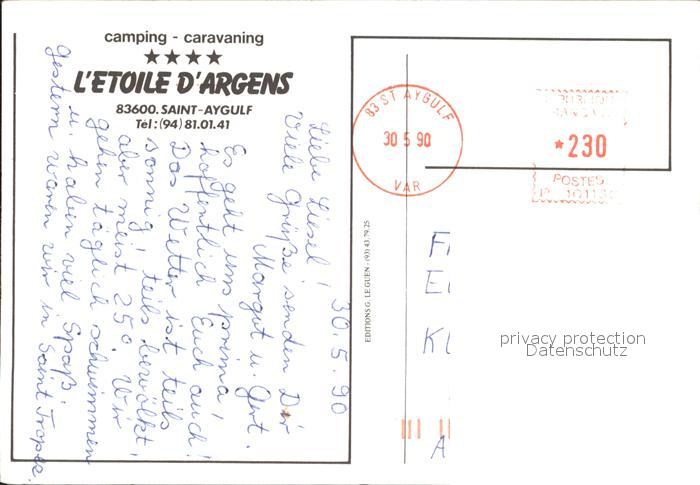 camping - caravaning
★★★★
L'ETOILE D'ARGENS
83600. SAINT-AYGULF
Tél: (94) 81.01.41
30.5.90
Liebe Liesel!
Viele Grüße senden Dir
Margut u. Gert.
Es geht uns prima,
hoffentlich Euch auch!
Das Wetter ist teils
sonnig, teils bewölkt,
aber meist 25°. Wir
gehen täglich schwimmen
u. haben viel Spaß.
Gestern waren wir in Saint Tropez.
EDITIONS G. LE GUEN - (93) 43.79.25
83 ST AYGULF
30 5 90
VAR
★230
POSTES
F
E
Kl
A
privacy protection
Datenschutz